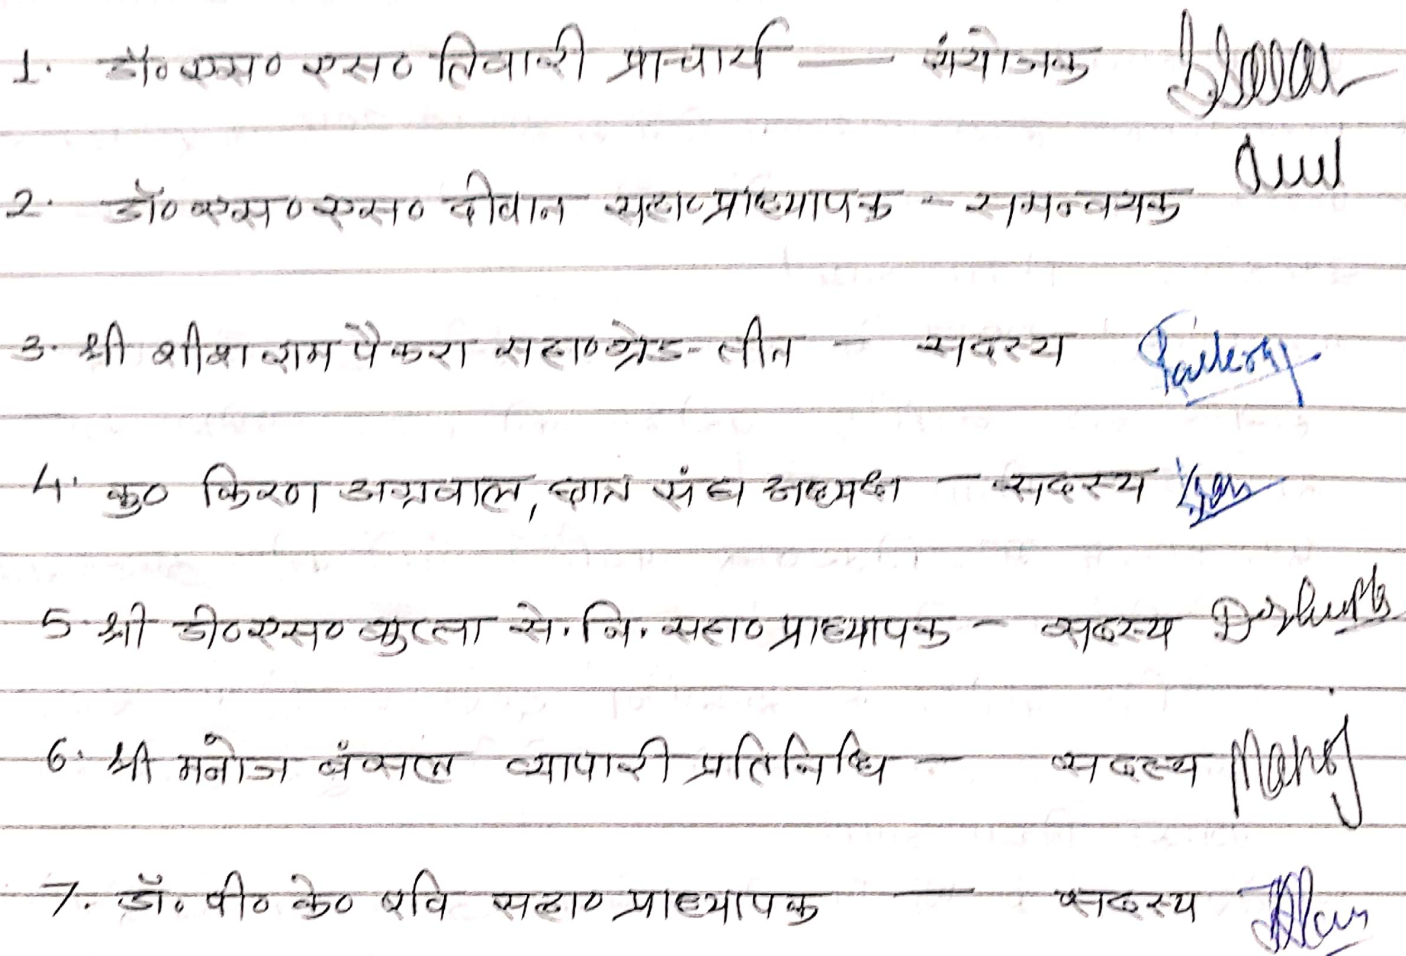 1. डॉ० एस० एस० तिवारी प्राचार्य — संयोजक
2. डॉ० एस० एस० दीवान सहा० प्राध्यापक - समन्वयक
3. श्री राम पैकरा सहा० ग्रेड-तीन - सदस्य
4. कु० किरण अग्रवाल, छात्र संघ अध्यक्ष - सदस्य
5. श्री डी० एस० से. नि. सहा० प्राध्यापक - सदस्य
6. श्री मनोज बंसल व्यापारी प्रतिनिधि - सदस्य Manoj
7. डॉ. पी० के० रवि सहा० प्राध्यापक — सदस्य